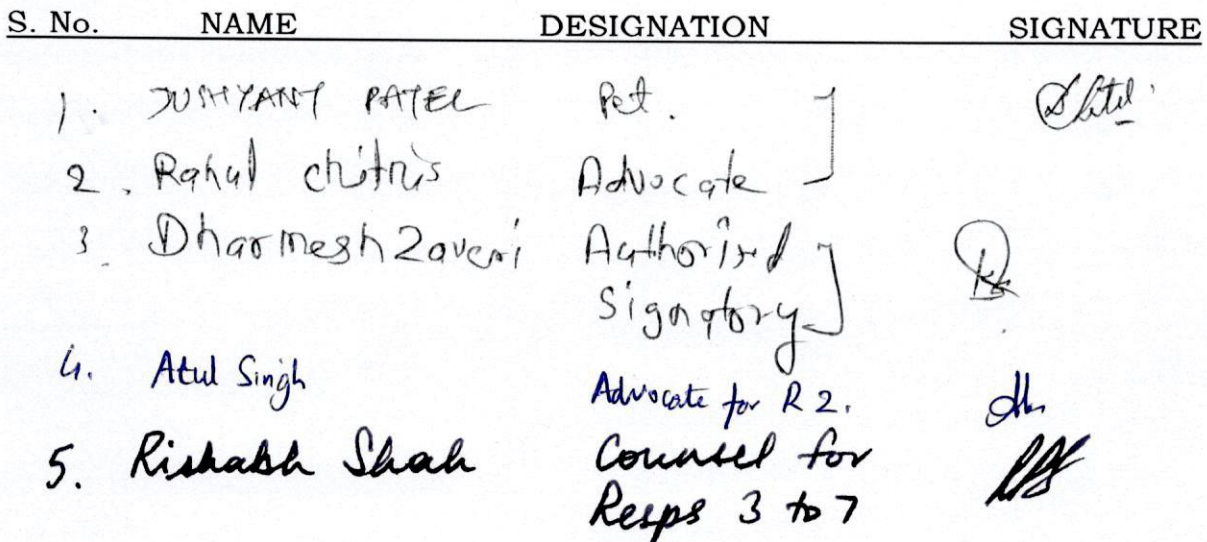 S. No. NAME DESIGNATION SIGNATURE
1. DUSHYANT PATEL Pet.
2. Rahul chitnis Advocate
3. Dharmesh Zaveri Authorised
Signatory
4. Atul Singh Advocate for R 2.
5. Rishabh Shah Counsel for
Resps 3 to 7